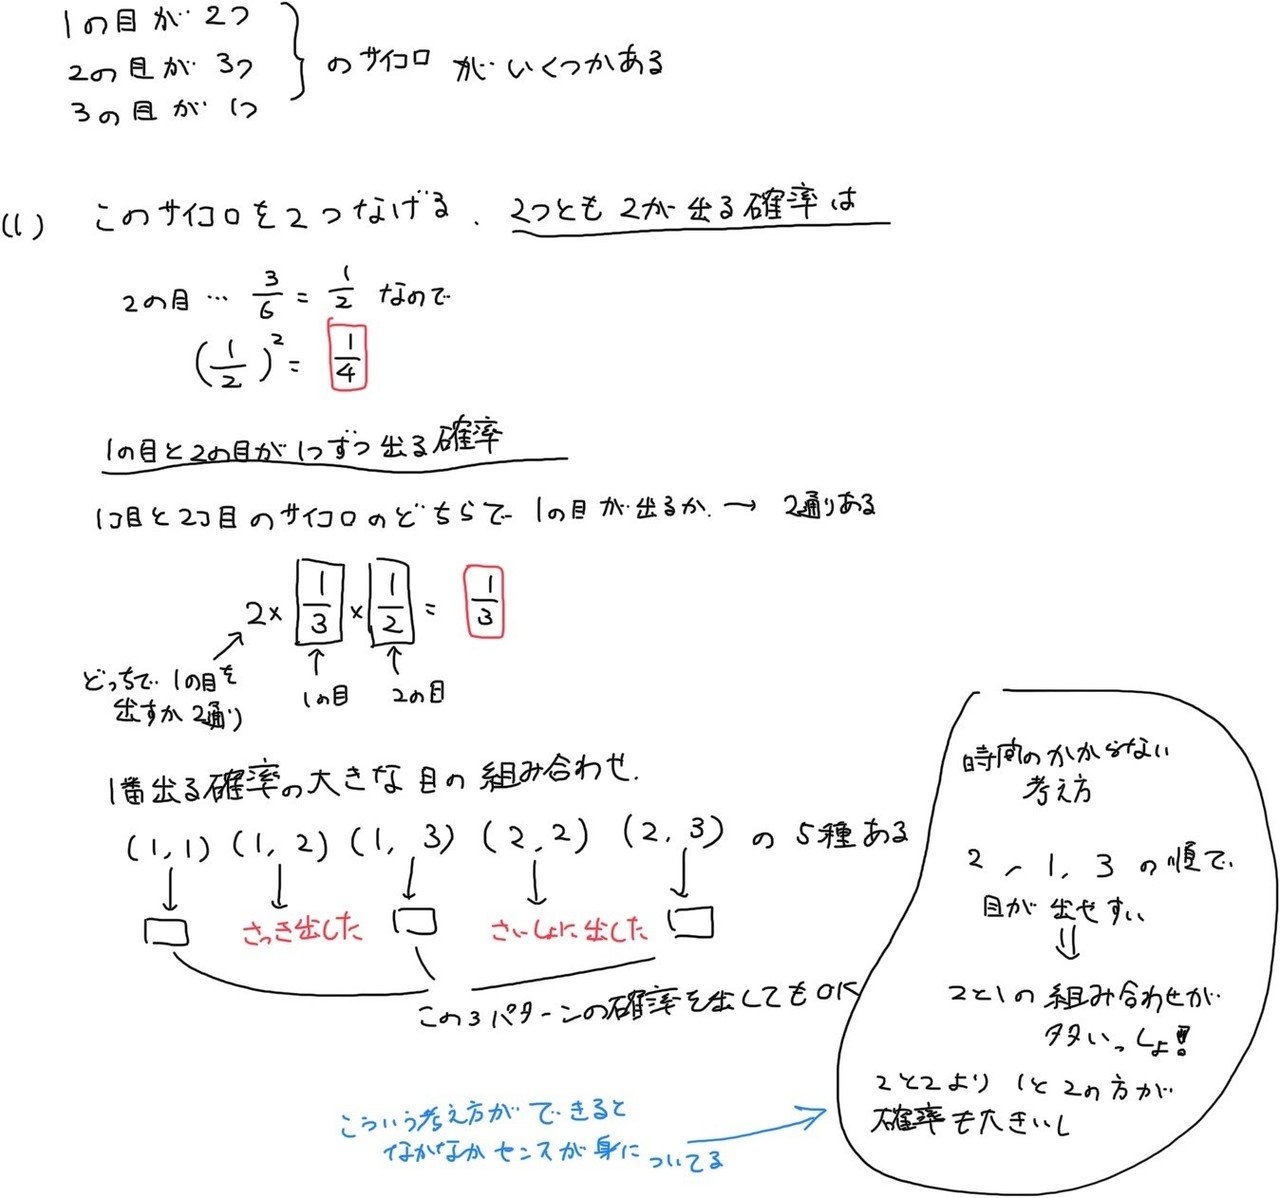 1の目が 2つ
2の目が 3つ
3の目が 1つ
のサイコロ がいくつかある
(1) このサイコロを2つなげる. 2つとも2が出る確率は
2の目 … 3/6 = 1/2 なので
(1/2)² = 1/4
1の目と2の目が1つずつ出る確率
1コ目と2コ目のサイコロのどちらで 1の目が出るか. → 2通りある
2× 1/3 × 1/2 = 1/3
どっちで 1の目を
出すか 2通り
1の目 2の目
1番出る確率の大きな目の組み合わせ.
(1,1) (1,2) (1,3) (2,2) (2,3) の 5種ある
さっき出した さいしょに出した
この3パターンの確率を出してもOK
時間のかからない
考え方
2、1, 3 の順で、
目が出せすい
⇓
2と1の組み合わせが
多いっしょ!!
2と2より 1と2の方が
確率も大きいし
こういう考え方ができると
なかなかセンスが身についてる